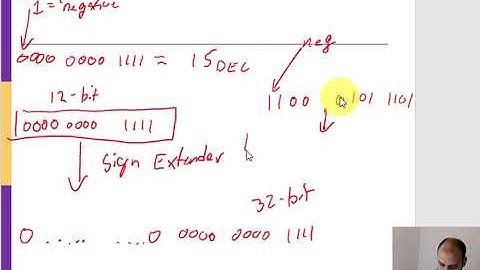 1 = negative
0000 0000 1111 = 15 DEC
neg
12-bit
1100 0101 1101
0000 0000 1111
Sign Extender
32-bit
0 ..... ....0 0000 0000 1111